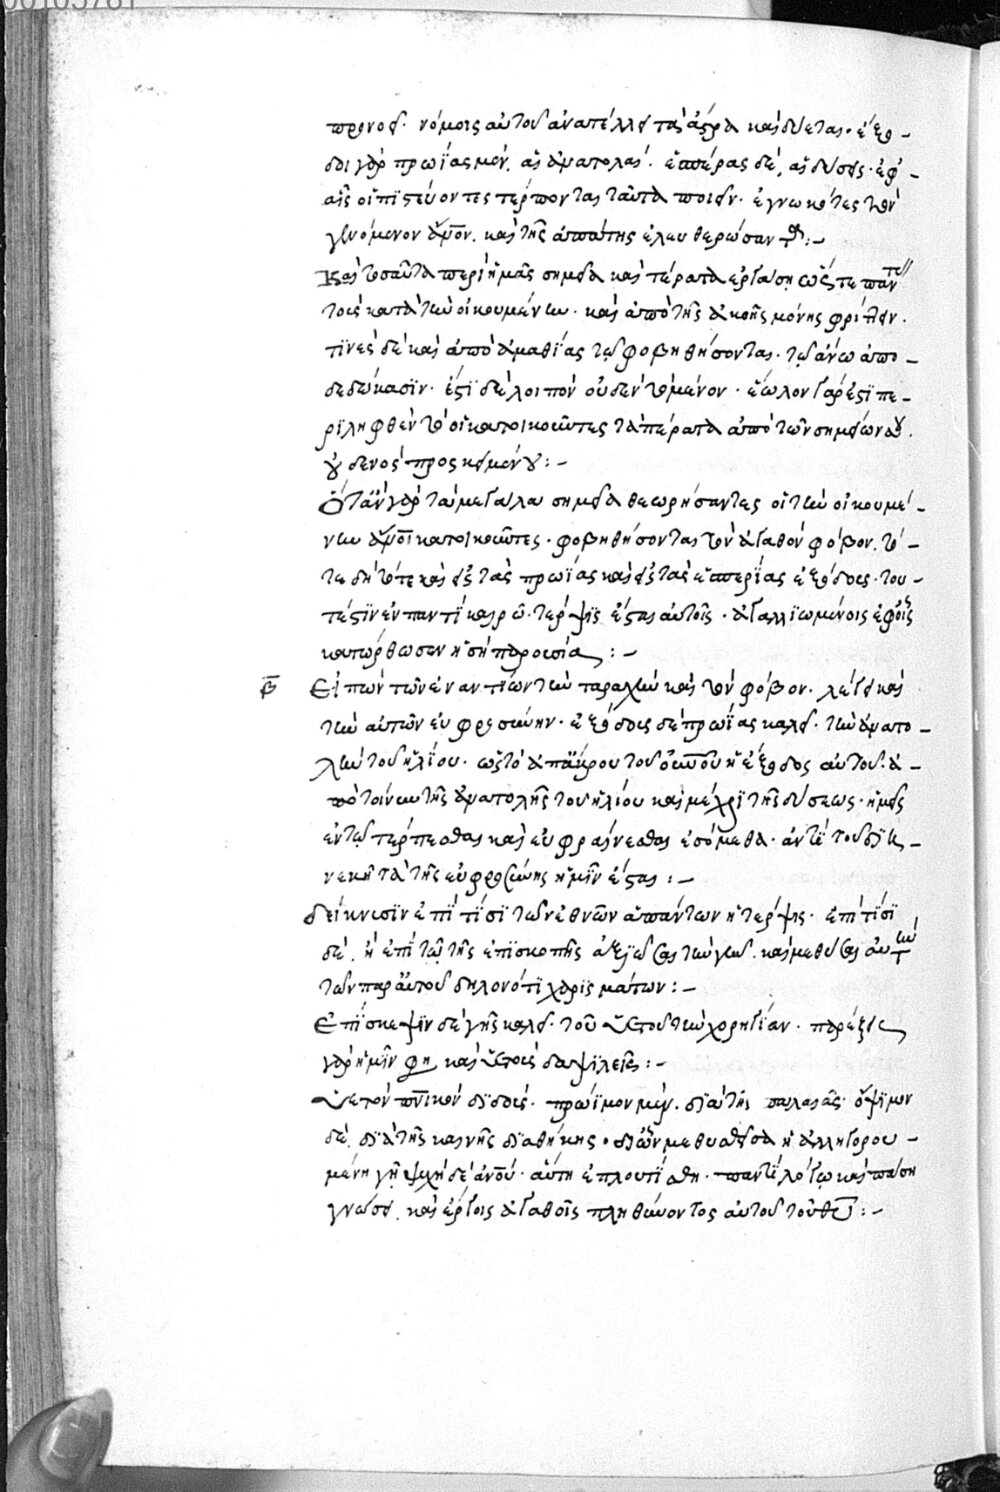 νόμοις αὐτοῦ ἀνατέλλει τὰ ἄστρα καὶ δύεται· ἔξο-
δοι γὰρ πρωΐας μὲν, αἱ ἀνατολαί· ἑσπέρας δὲ, αἱ δύσεις· ἐφ'
αἷς οἱ πϊστεύοντες τέρπονται ταῦτα ποιεῖν· ἐγνωκότες τὸν
γενόμενον ἄνον, καὶ τῆς ἀπάτης ἐλευθερώσαντα:-
Καὶ τοσαῦτα περὶ ἡμᾶς σημεῖα καὶ τέρατα ἐργάσῃ ὥστε πάν
τας κατὰ τὴν οἰκουμένην· καὶ ἀπὸ τῆς ἀκοῆς μόνης φρίττειν·
τϊνὲς δὲ καὶ ἀπὸ ἀμαθίας τῷ φοβηθήσονται, τῷ ἄνω ἀπο-
δεδώκασϊν· ἔστϊ δὲ λοιπὸν οὐδὲν τὸ μένον· ἕωλον γάρ ἐστϊ πε-
ρϊληφθὲν τὸ οἱ κατοικοῦντες τὰ πέρατα ἀπὸ τῶν σημείων σου·
οὐδενὸς προσκειμένου:-
Ὅταν γὰρ τὰ μεγάλα σημεῖα θεωρήσαντες οἱ τὴν οἰκουμέ-
νην ἄνοι κατοικοῦντες· φοβηθήσονται τὸν ἀγαθὸν φόβον, τό-
τε δὴ τότε καὶ εἰς τὰς πρωΐας καὶ εἰς τὰς ἑσπερίας ἐξόδους· του-
τέστϊν ἐν παντὶ καιρῷ· τέρψϊς ἔσται αὐτοῖς· ἀγαλλϊωμένοις ἐφ' οἷς
κατώρθωσεν ἡ σὴ παρουσία:-
β Εἰπὼν τῶν ἐναντίων τὴν ταραχὴν καὶ τὸν φόβον· λέγει καὶ
τὴν αὐτῶν εὐφροσύνην· ἐξόδους δὲ πρωΐας καλεῖ· τὴν ἀνατο-
λὴν τοῦ ἡλίου· ὡς τὸ ἀπ' ἄκρου τοῦ οὐνοῦ ἡ ἔξοδος αὐτοῦ· ἀ-
πὸ τοίνυν τῆς ἀνατολῆς τοῦ ἡλίου καὶ μέχρϊ τῆς δύσεως· ἡμεῖς
ἐν τῷ τέρπεσθαι καὶ εὐφραίνεσθαι ἐσόμεθα· ἀντὶ τοῦ διη-
νεκῆ τὰ τῆς εὐφροσύνης ἡμῖν ἔσται:-
δείκνυσϊν ἐπϊ τϊσϊ τῶν ἐθνῶν ἁπάντων ἡ τέρψις· ἐπὶ τϊσϊ
δὲ, ἢ ἐπὶ τῷ τῆς ἐπϊσκοπῆς ἀξιῶσαι τὴν γῆν, καὶ μεθύσαι αὐτὴν
τῶν παρ' αὐτοῦ δηλονότϊ χαρισμάτων:-
Ἐπίσκεψϊν δὲ γῆς καλεῖ· τοῦ ὑετοῦ τὴν χορηγίαν· παρέξεις
γὰρ ἡμῖν φη, καὶ ὑετοὺς δαψϊλεῖς:-
Ὑετὸν πνικὸν δϊδοὺς· πρώϊμον μὲν, δϊὰ τῆς παλαιᾶς· ὄψϊμον
δὲ, δϊὰ τῆς καινῆς δϊαθήκης· δϊ' ὧν μεθυσθεῖσα ἡ ἀλληγορου-
μένη γῆ ψυχὴ δὲ ἀνου· αὕτη ἐπλουτίσθη· παντὶ λόγῳ καὶ πάσῃ
γνώσει, καὶ ἔργοις ἀγαθοῖς πληθύνοντος αὐτοῦ τοῦ θυ:-